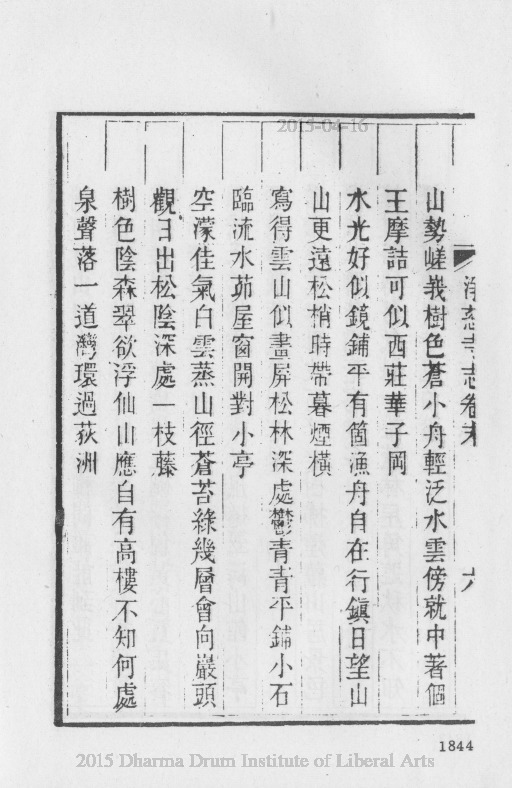 2015-04-16
淨慈寺志卷末
六
山勢嵯峩樹色蒼小舟輕泛水雲傍就中著個
王摩詰可似西莊華子岡
水光好似鏡鋪平有箇漁舟自在行鎭日望山
山更遠松梢時帶暮煙橫
寫得雲山似畫屏松林深處鬱青青平鋪小石
臨流水茆屋窗開對小亭
空濛佳氣白雲蒸山徑蒼苔綠幾層會向巖頭
觀日出松陰深處一枝藤
樹色陰森翠欲浮仙山應自有高樓不知何處
泉聲落一道灣環過荻洲
1844
2015 Dharma Drum Institute of Liberal Arts